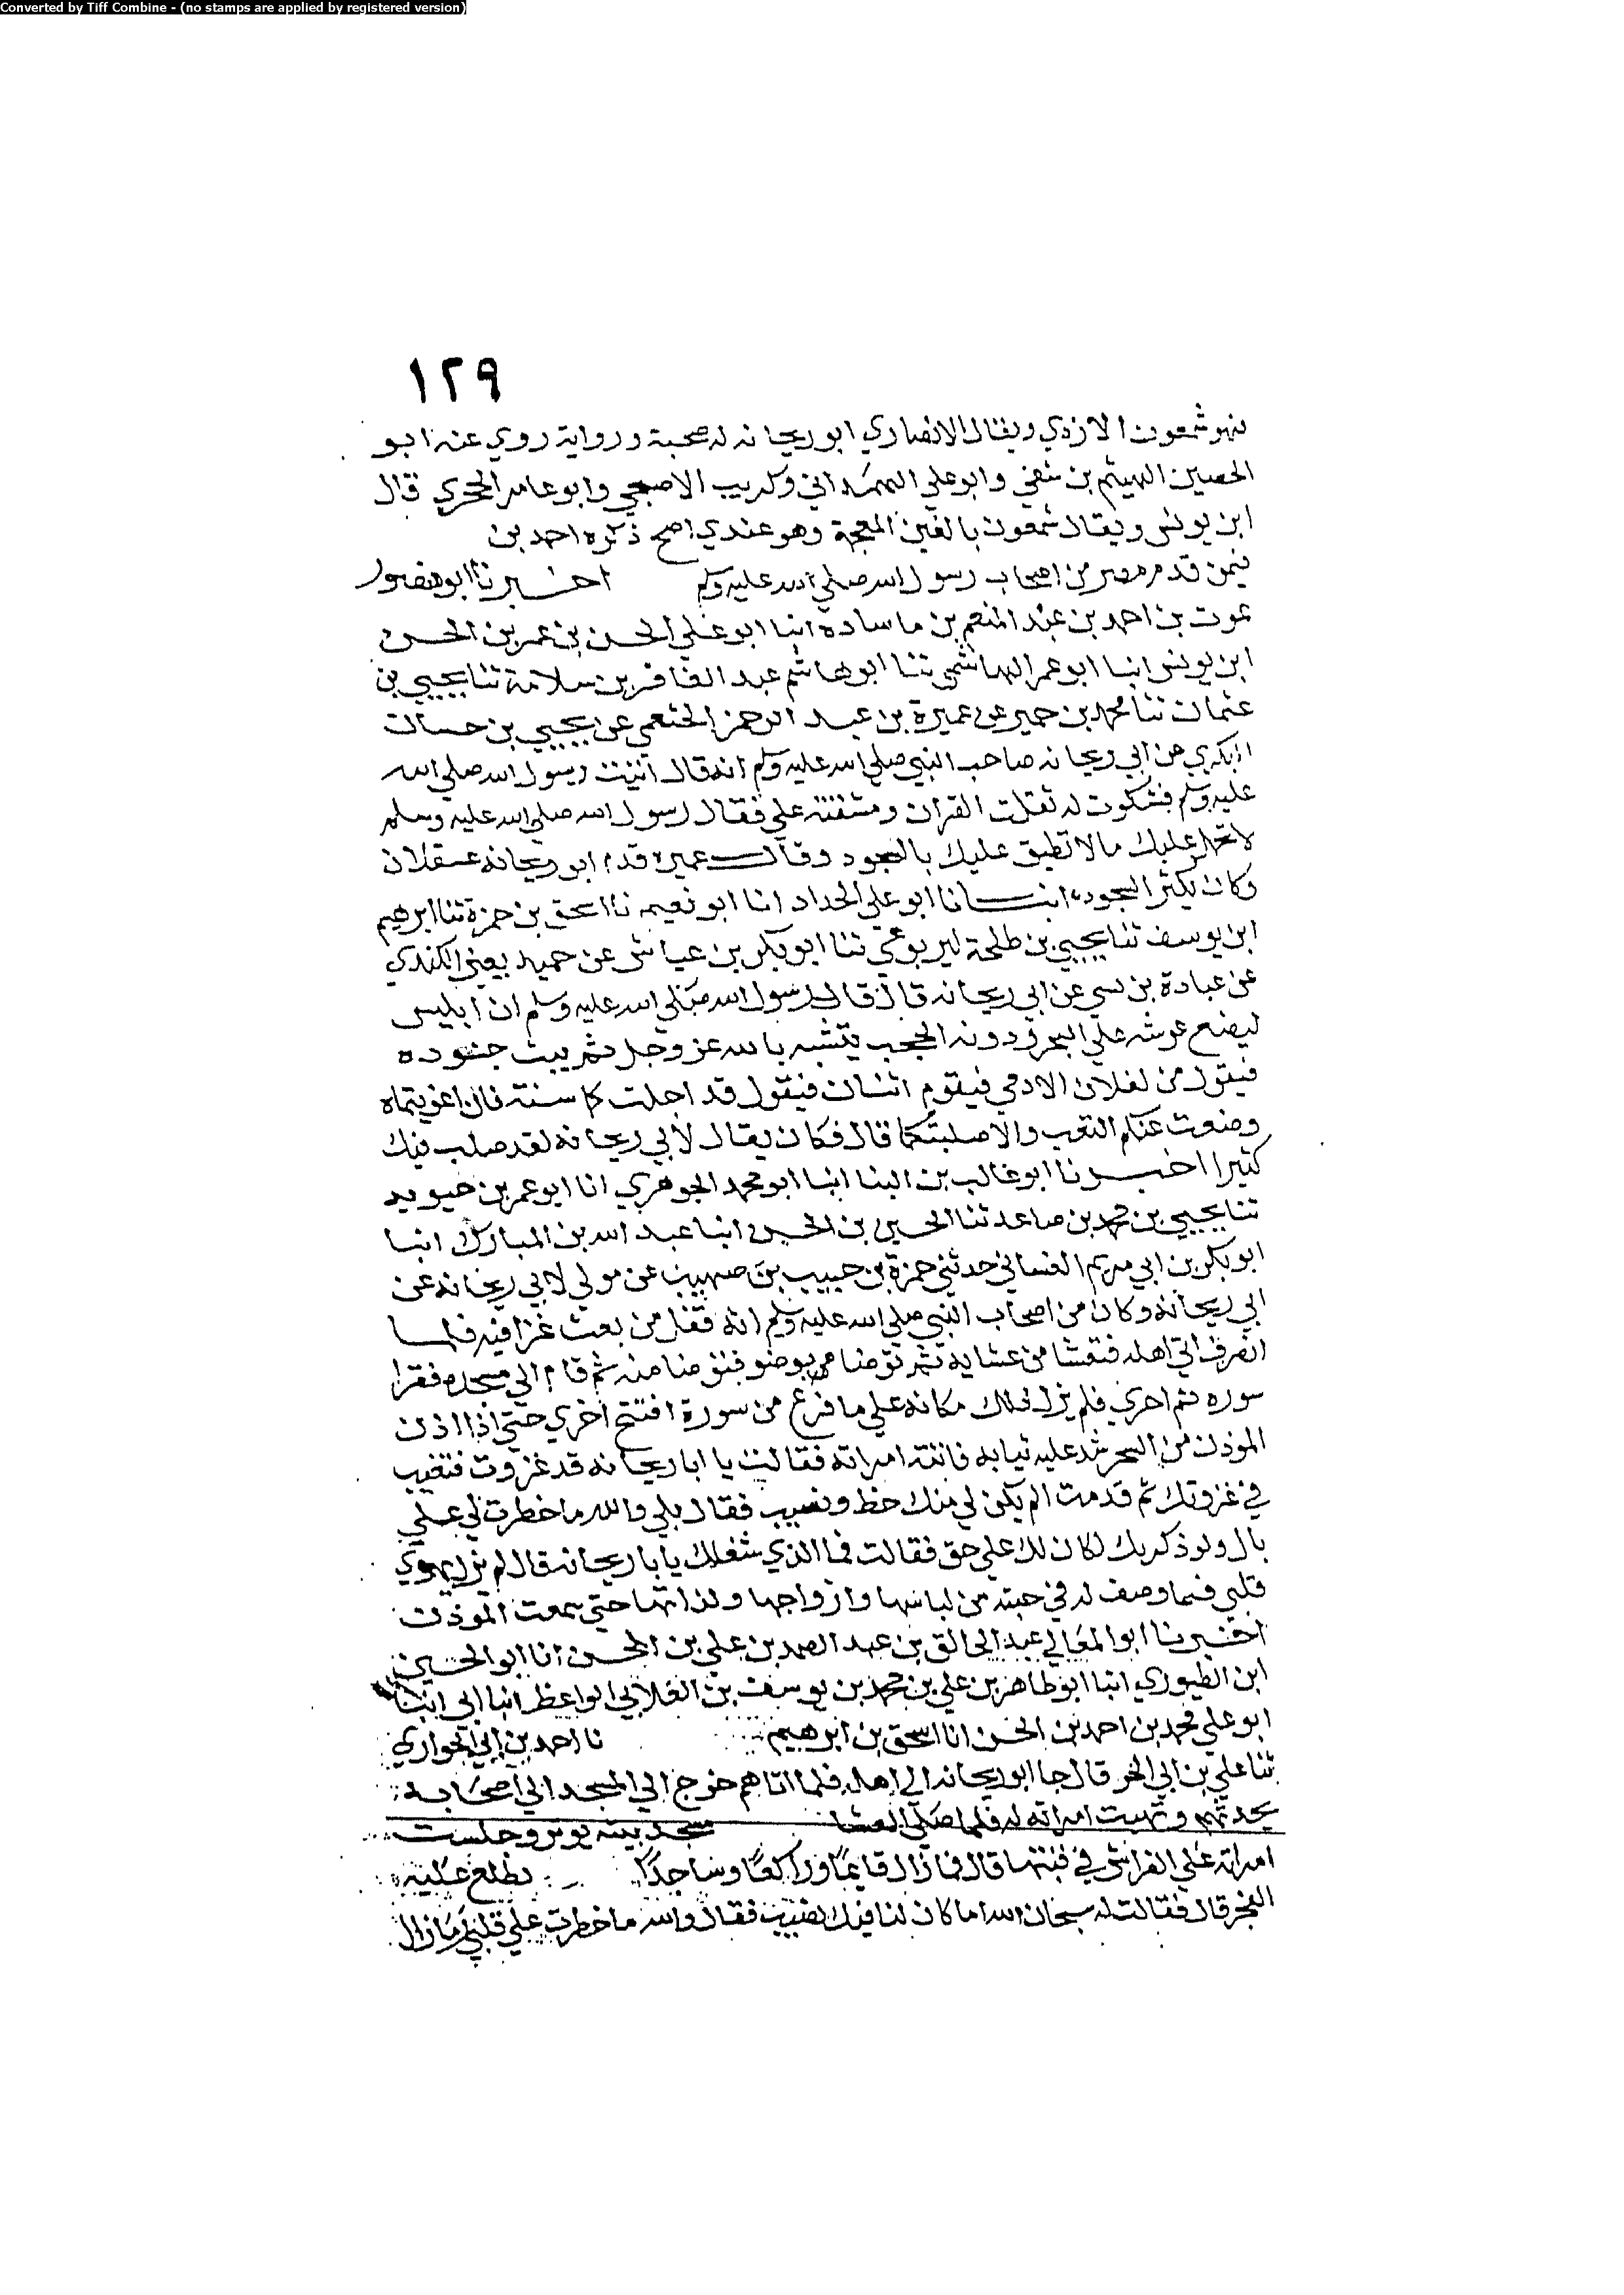 Converted by Tiff Combine - (no stamps are applied by registered version)
١٢٩
فهو شمعون الازدي ويقال الانصاري ابو ريحانه له صحبة ورواية روي عنه ابو
الحصين الهيثم بن شفي وابو علي الهمداني وكريب الاصبحي وابو عامر الحجري قال
ابن يونس ويقال شمغون بالغين المعجمة وهو عندي اصح ذكره احمد بن
فيمن قدم مصر من اصحاب رسول الله صلي الله عليه وسلم اخبرنا ابو منصور
بن احمد بن عبد المنعم بن ماساده انبا ابو علي الحسن بن عمر بن الحسن
ابن يونس انبا ابو عمر الهاشمي ثنا ابو هاشم عبد الغافر بن سلامة ثنا يحيي بن
عثمان ثنا محمد بن حمير عن عميرة بن عبد الرحمن الخثعمي عن يحيي بن حسان
البكري عن ابي ريحانه صاحب النبي صلي الله عليه وسلم انه قال اتيت رسول الله صلي الله
عليه وسلم فشكوت له تفلت القران ومشقته علي فقال رسول الله صلي الله عليه وسلم
لا تحمل عليك مالا تطيق عليك بالسجود وقال عميره قدم ابو ريحانه عسقلان
وكان يكثر السجود انبانا ابو علي الحداد انا ابو نعيم نا اسحق بن حمزة ثنا ابرهيم
ابن يوسف ثنا يحيي بن طلحة ليربوعي ثنا ابو بكر بن عياش عن حميد يعني الكندي
عن عبادة بن نسي عن ابي ريحانه قال قال رسول الله صلي الله عليه وسلم ان ابليس
ليضع عرشه علي البحر ودونه الحجب يتشبه بالله عز وجل ثم يبث جنوده
فيقول من لفلان الادمي فيقوم اثنان فيقول قد اجلتكما سنة فان اغويتماه
وضعت عنكم التعب والا صلبتكما قال فكان يقال لابي ريحانه لقد صلب فيك
كثيرا اخبرنا ابو غالب بن البنا انبا ابو محمد الجوهري انا ابو عمر بن حيويه
ثنا يحيي بن محمد بن صاعد ثنا الحسين بن الحسن انبا عبد الله بن المبارك انبا
ابو بكر بن ابي مريم الغساني حدثني حمزة بن حبيب بن صهيب عن مولي لابي ريحانه عن
ابي ريحانه وكان من اصحاب النبي صلي الله عليه وسلم انه قفل من بعث غزا فيه فلما
انصرف الي اهله فتعشا من عشايه ثم توضا من بوضو فتوضا منه ثم قام الي مسجده فقرا
سوره ثم اخري فلم يزل ذلك مكانه علي ما فرغ من سورة افتتح اخري حتي اذا اذن
الموذن من السحر شد عليه ثيابه فاتته امراته فقالت يا ابا ريحانه قد غزوت فتعبت
في غزوتك ثم قدمت الم يكن لي منك حظ ونصيب فقال بلي والله ما خطرت لي علي
بال ولو ذكرتك لكان لك علي حق فقالت فما الذي شغلك يا با ريحانه قال لم يزل يهوي
قلبي فيما وصف له في جنته من لباسها وازواجها ولذاتها حتي سمعت الموذن
اخبرنا ابو المعالي عبد الخالق بن عبد الصمد بن علي بن الحسن انا ابو الحسين
ابن الطيوري انبا ابو طاهر بن علي بن محمد بن يوسف بن العلاف الواعظ انبا ابي انبا
ابو علي محمد بن احمد بن الحسن انا اسحق بن ابرهيم نا احمد بن ابي الحواري
ثنا علي بن ابي الحر قال جا ابو ريحانه الي اهله فلما اتاهم خرج الي المسجد الي اصحابه
يحدثهم وتهيت امراته له فلما صلي العشا مسجد بيته وجلست
امراته علي الفراش في قال فما زال قايما وراكعا وساجدا يطلع عليه
الفجر قال فقالت له سبحان الله اما كان لنا فيك نصيب فقال والله ما خطرت علي قلبي ما زال